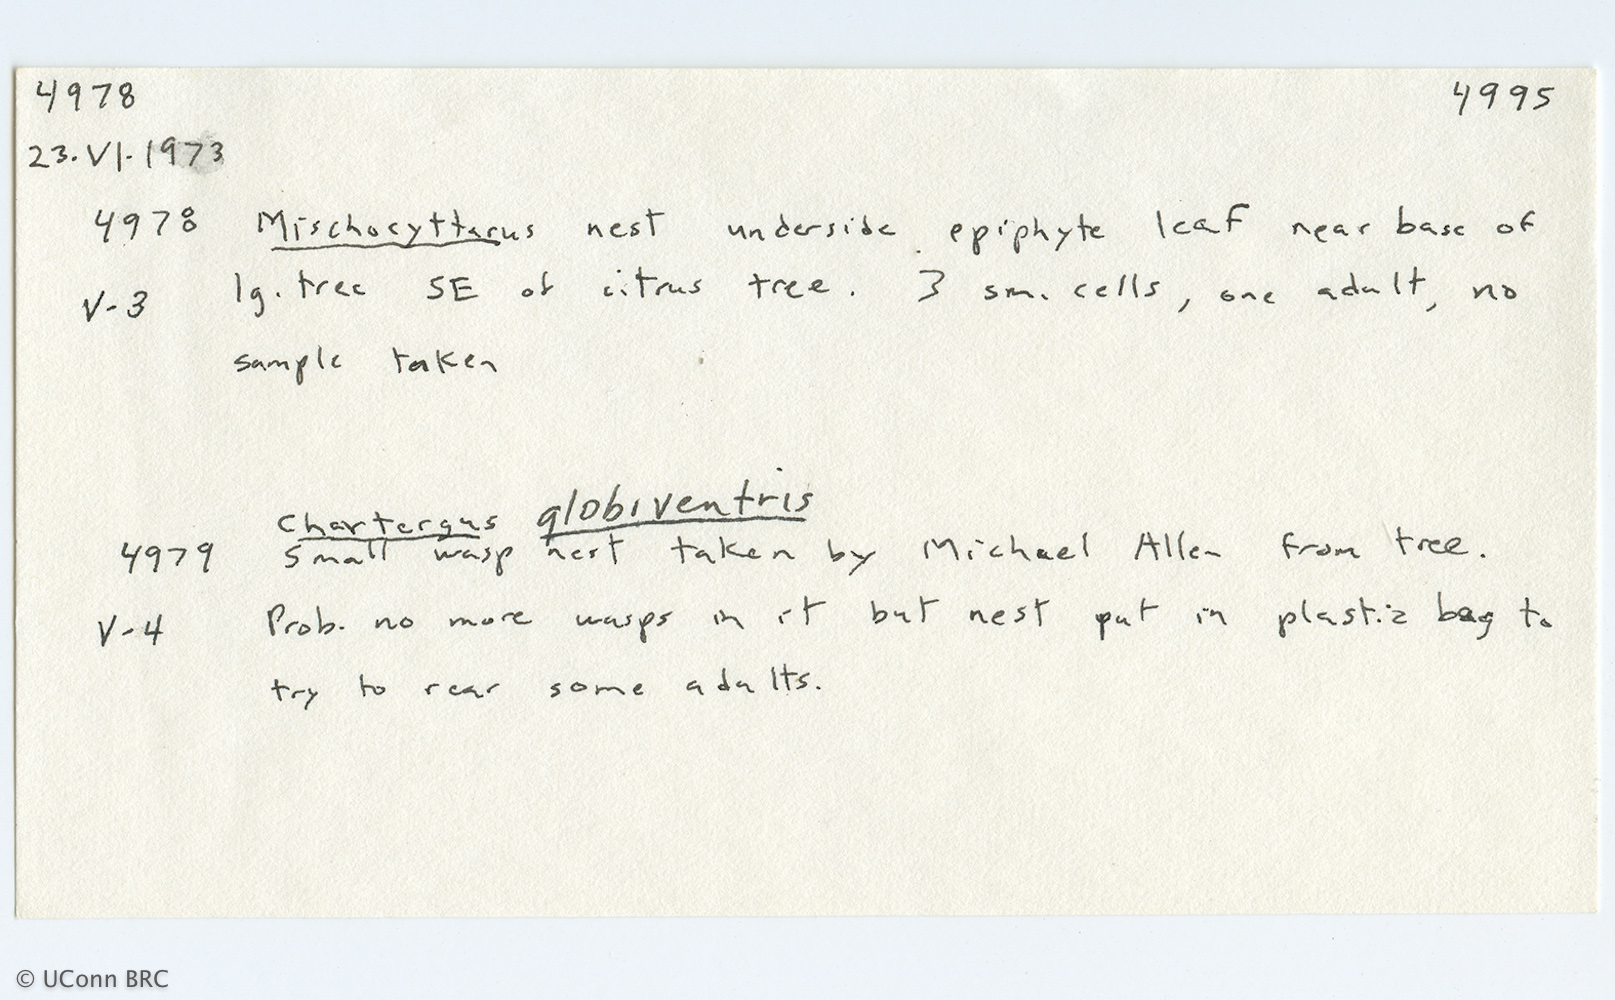 4978 4995
23.VI.1973
4978 Mischocyttarus nest underside epiphyte leaf near base of
V-3 lg. tree SE of citrus tree. 3 sm. cells, one adult, no
sample taken
Chartergus globiventris
4979 Small wasp nest taken by Michael Allen from tree.
V-4 Prob. no more wasps in it but nest put in plastic bag to
try to rear some adults.
© UConn BRC